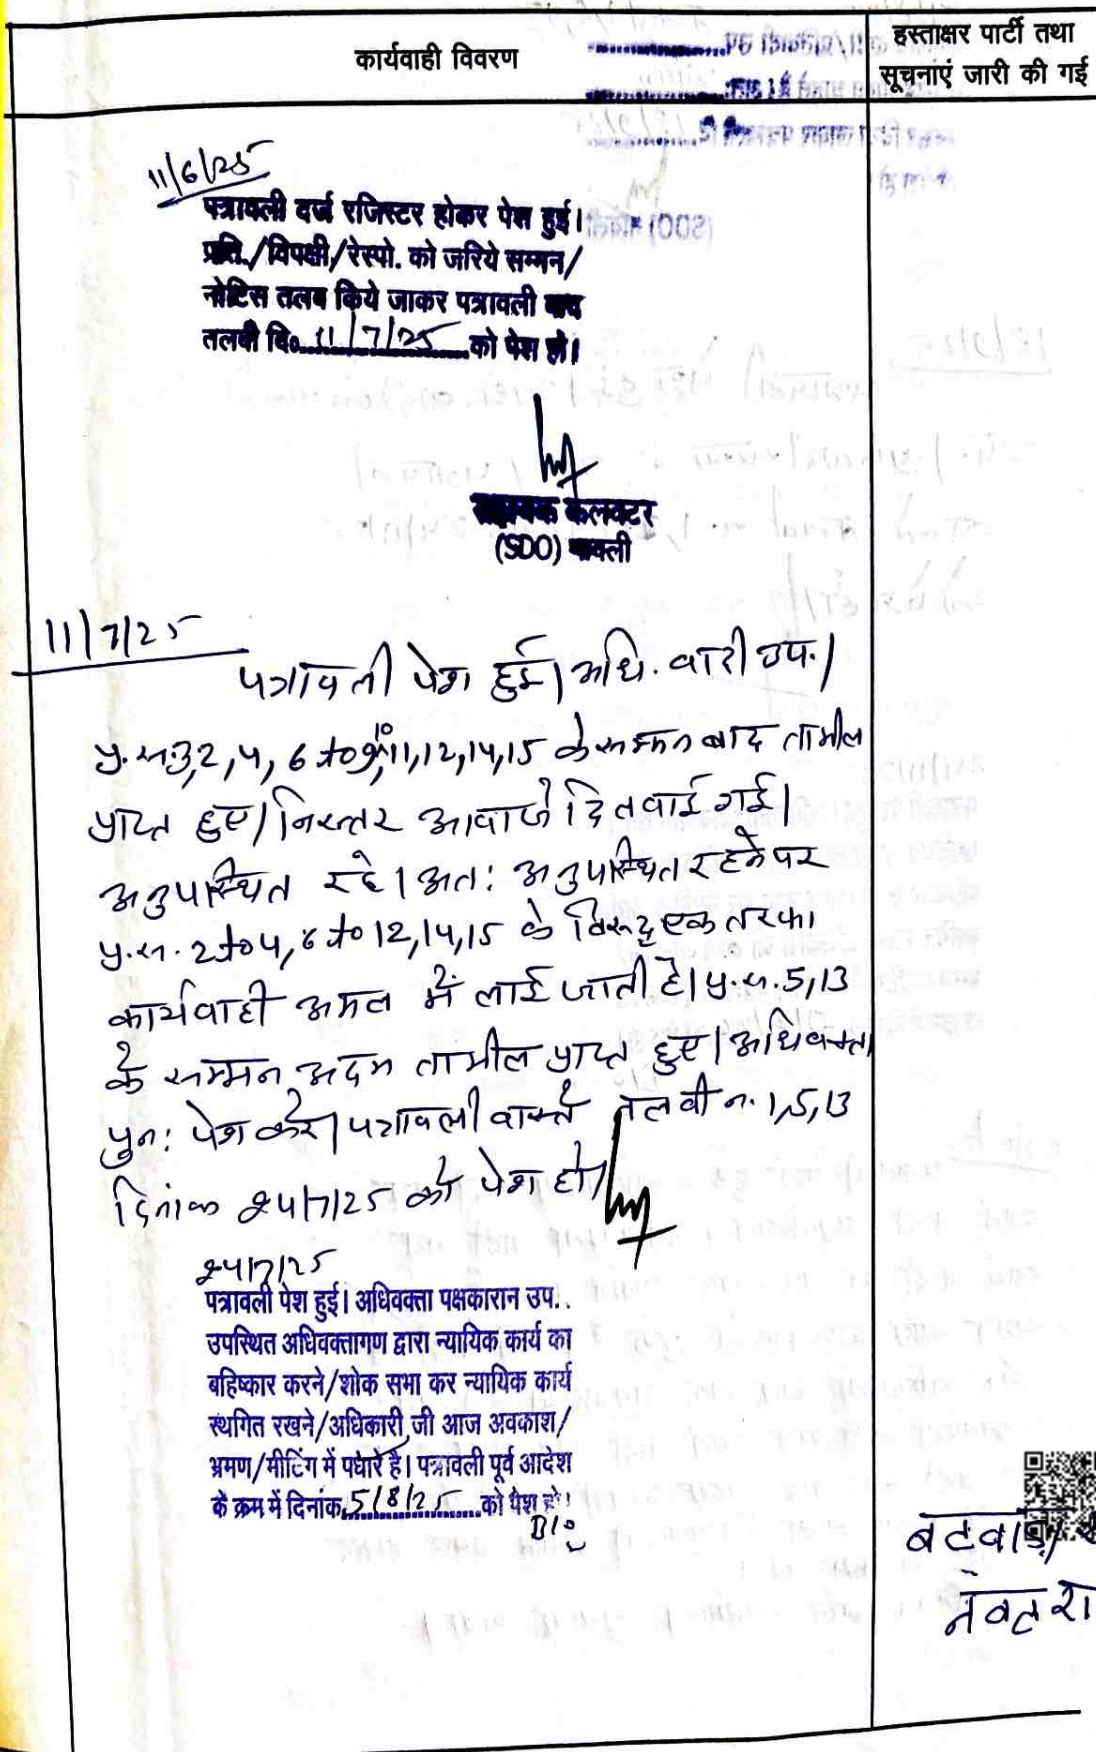 कार्यवाही विवरण
हस्ताक्षर पार्टी तथा
सूचनाएं जारी की गई
11/6/25
पत्रावली दर्ज रजिस्टर होकर पेश हुई।
प्रति./विपक्षी/रेस्पो. को जरिये सम्मन/
नोटिस तलब किये जाकर पत्रावली बाद
तलबी दि० 11/7/25 को पेश हो।
सहायक कलक्टर
(SDO) मावली
11/7/25
पत्रावली पेश हुई। अधि. वादी उप.।
प्र.सं. 3, 2, 4, 6 to 9, 10, 11, 12, 14, 15 के सम्मन बाद तामील
प्राप्त हुए। निरन्तर आवाजे दिलवाई गई।
अनुपस्थित रहे। अत: अनुपस्थित रहने पर
प्र.सं. 2 to 4, 6 to 12, 14, 15 के विरूद्ध एक तरफा
कार्यवाही अमल में लाई जाती है। प्र.सं. 5, 13
के सम्मन अदम तामील प्राप्त हुए। अधिवक्ता
पुन: पेश करे। पत्रावली वास्ते तलबी न. 1, 5, 13
दिनांक 24/7/25 को पेश हो।
24/7/25
पत्रावली पेश हुई। अधिवक्ता पक्षकारान उप..
उपस्थित अधिवक्तागण द्वारा न्यायिक कार्य का
बहिष्कार करने/शोक सभा कर न्यायिक कार्य
स्थगित रखने/अधिकारी जी आज अवकाश/
भ्रमण/मीटिंग में पधारे है। पत्रावली पूर्व आदेश
के क्रम में दिनांक 5/8/25 को पेश हो।